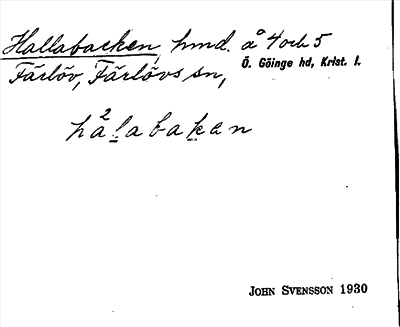 Hallabacken, hmd. å 4 och 5
Färlöv, Färlövs sn, Ö. Göinge hd, Krist. l.
ha²l̲abak̲an
JOHN SVENSSON 1930